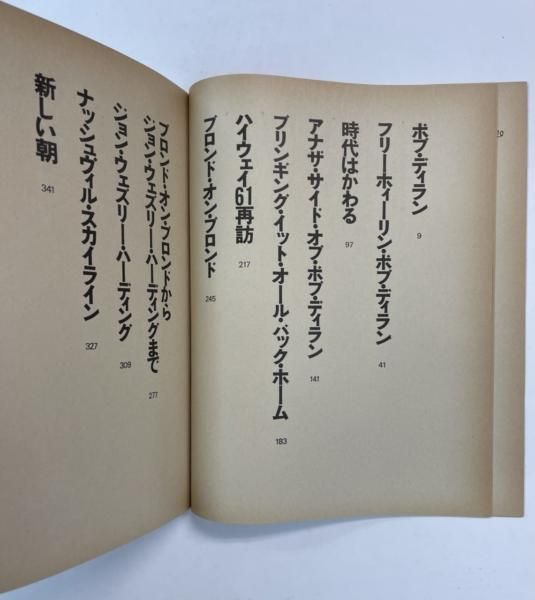 ボブ・ディラン 9
フリーホイーリン・ボブ・ディラン 41
時代はかわる 97
アナザ・サイド・オブ・ボブ・ディラン 141
ブリンギング・イット・オール・バック・ホーム 183
ハイウェイ61再訪 217
ブロンド・オン・ブロンド 245
ブロンド・オン・ブロンドから
ジョン・ウェズリー・ハーディングまで 277
ジョン・ウェズリー・ハーディング 309
ナッシュヴィル・スカイライン 327
新しい朝 341